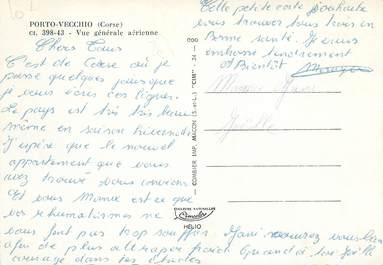 PORTO-VECCHIO (Corse)
CI. 398-43 - Vue générale aérienne
Chers Tous
C'est de Corse où je
passe quelques jours que
je vous écris ces lignes.
Le pays est très très beau
même en saison hivernale
J'espère que le nouvel
appartement que vous
avez trouvé vous convient
Et vous Mamie est ce que
vos rhumatismes ne
vous font pas trop souffrir
afin de plus attraper froid Quand à toi Joëlle
courage dans tes études
Cette petite carte souhaite
vous trouver tous trois en
Bonne santé. Je vous
embrasse tendrement
A Bientôt
Joëlle
COMBIER IMP. MACON (S.-et-L.) "CIM"
COULEURS NATURELLES
Cimcolor
HELIO